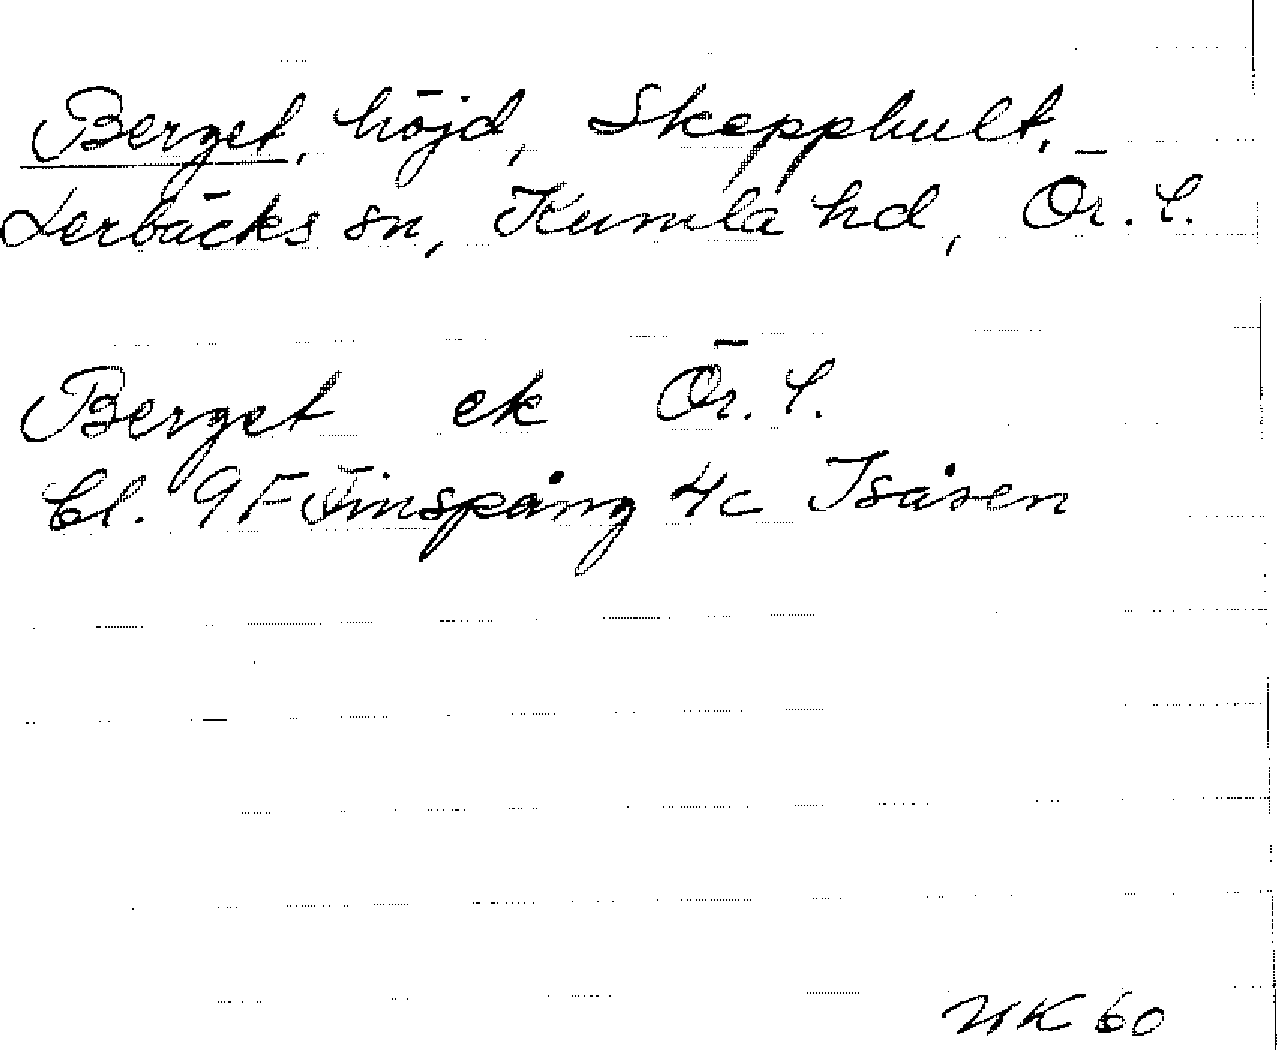 Berget, höjd, Skepphult,
Lerbäcks sn, Kumla hd, Ör. l.
Berget ek Ör. l.
Bl. 9F Finspång 4c Isåsen
NK 60